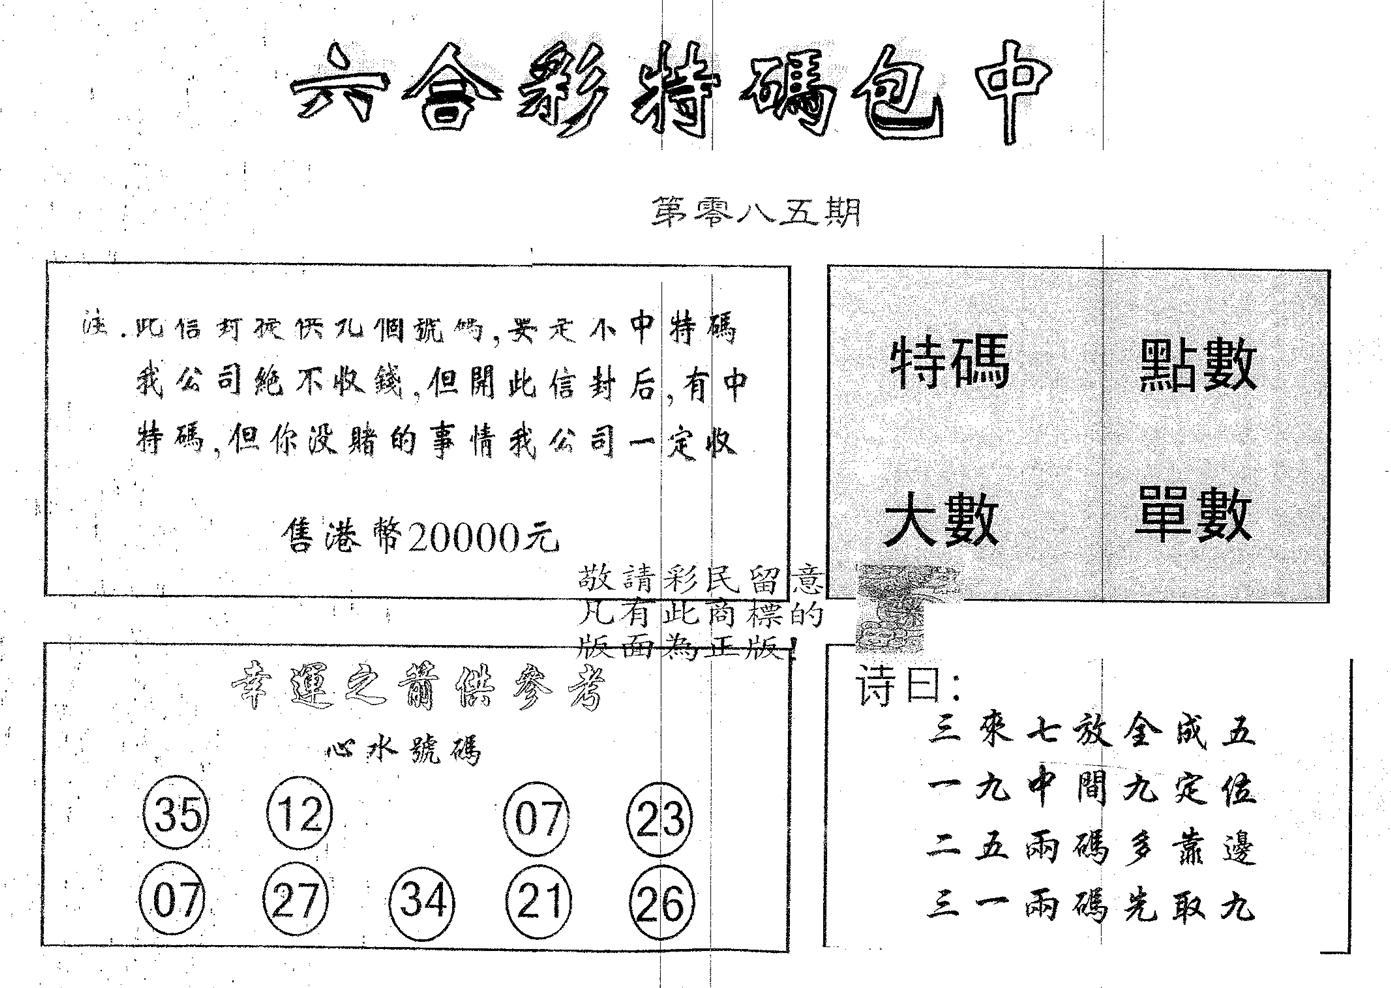 六合彩特碼包中
第零八五期
注.此信封提供九個號碼,要是不中特碼
我公司絕不收錢,但開此信封后,有中
特碼,但你没賭的事情我公司一定收
售港幣20000元
特碼 點數
大數 單數
敬請彩民留意
凡有此商標的
版面為正版!
幸運之箭供參考
心水號碼
35 12 07 23
07 27 34 21 26
诗曰:
三來七放全成五
一九中間九定位
二五兩碼多靠邊
三一兩碼先取九